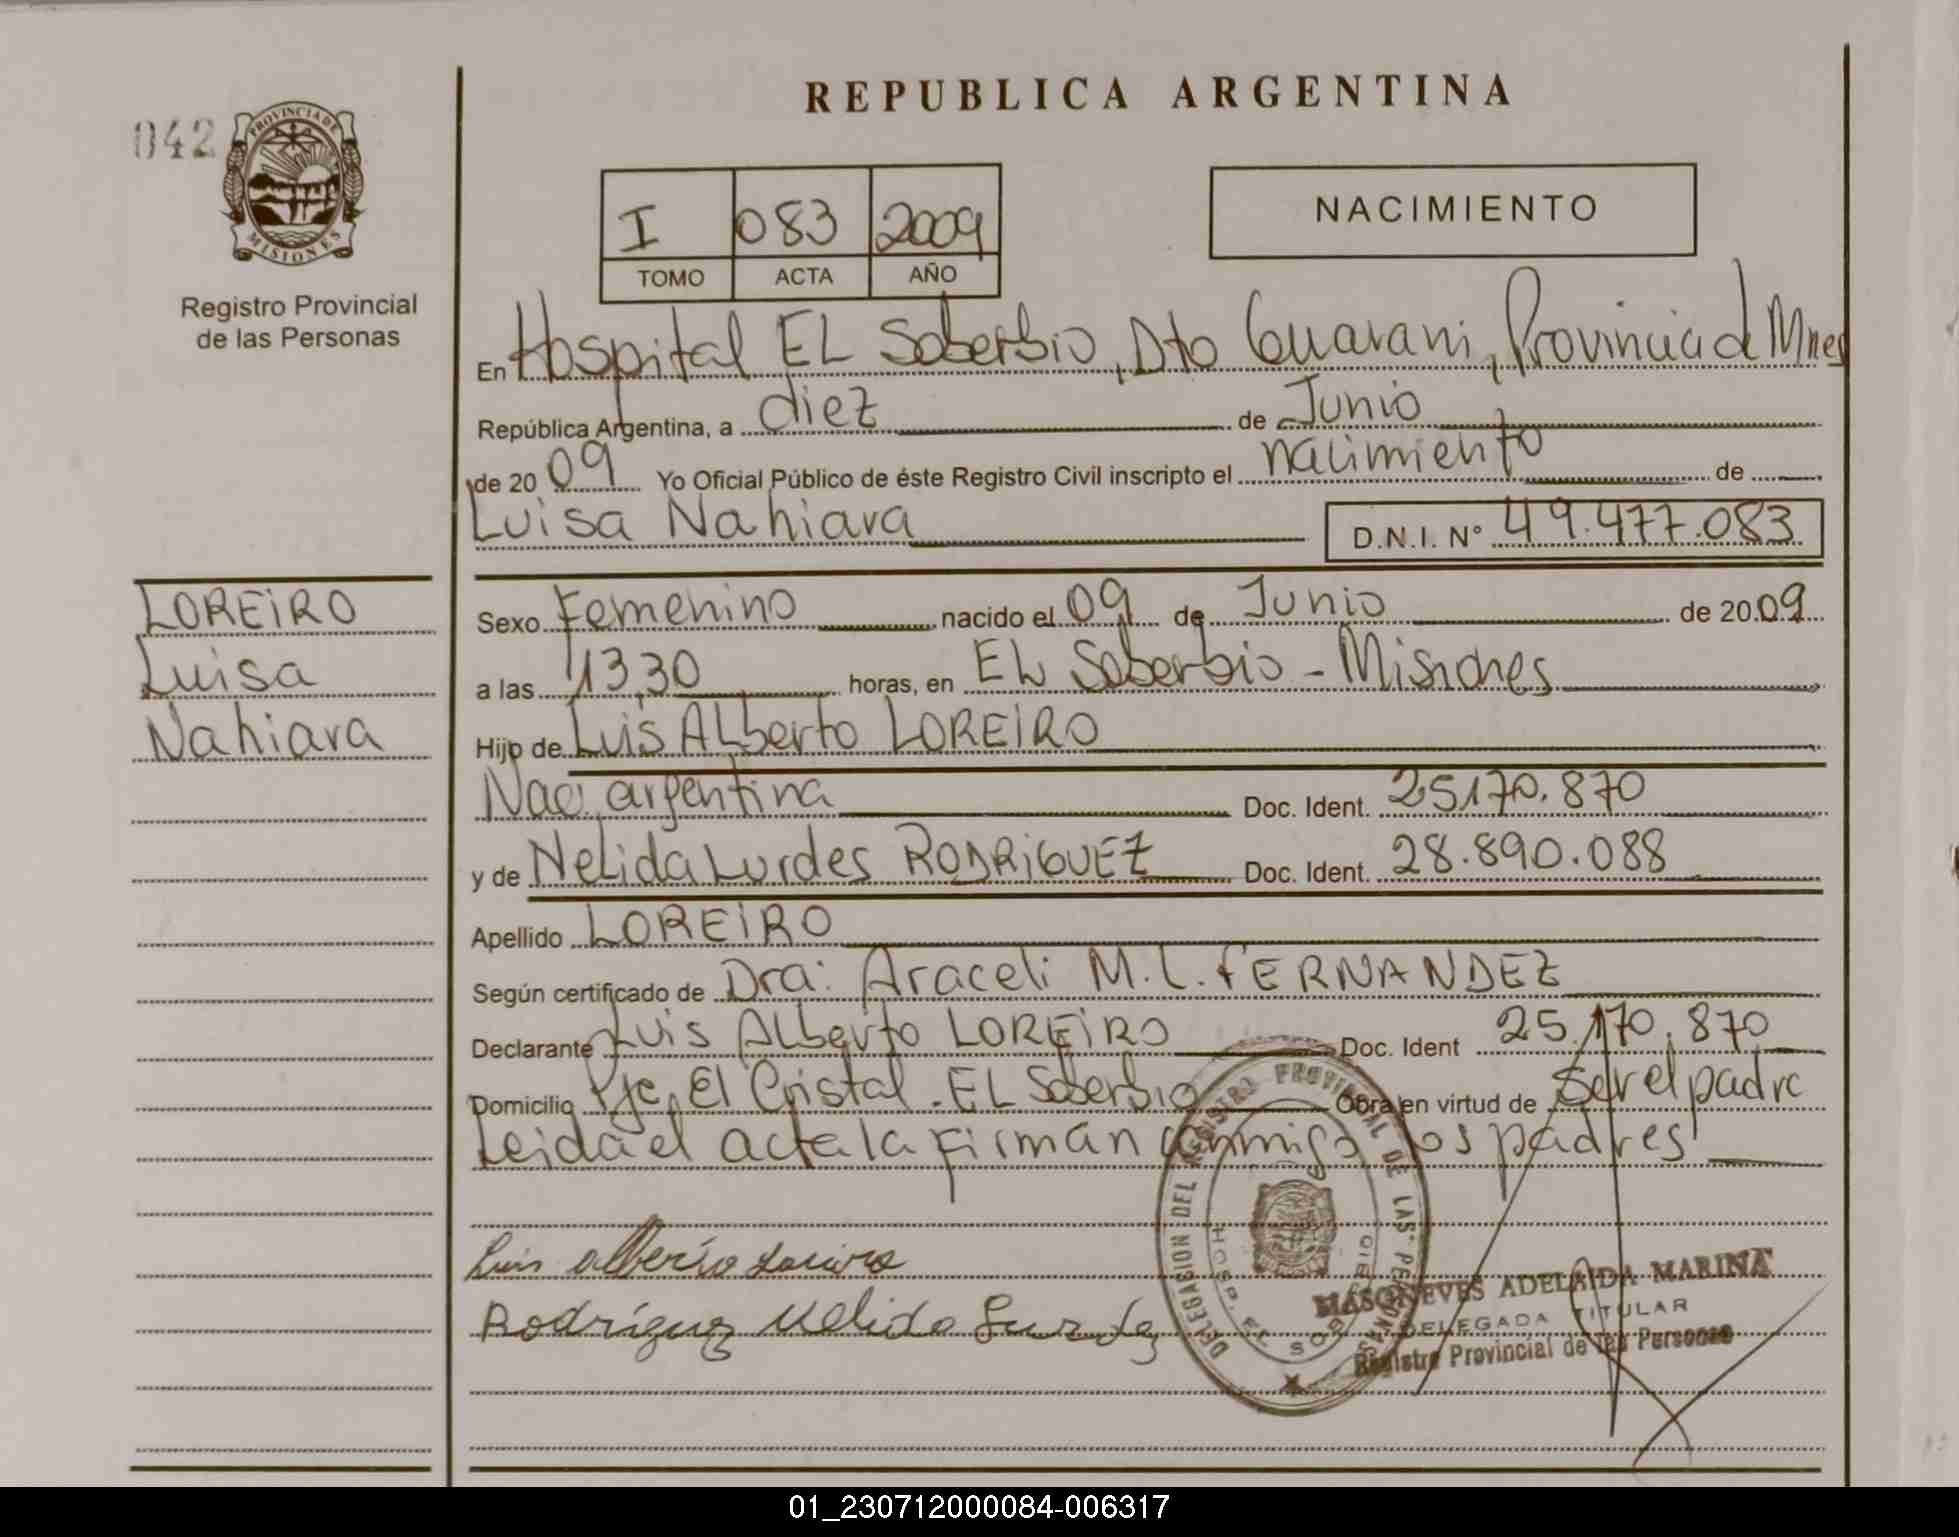 REPUBLICA ARGENTINA
042
PROVINCIA DE
MISIONES
Registro Provincial
de las Personas
I 083 2009
TOMO ACTA AÑO
NACIMIENTO
En Hospital EL Soberbio, Dto Guarani, Provincia de Mnes
República Argentina, a diez de Junio
de 2009 Yo Oficial Público de éste Registro Civil inscripto el nacimiento de
Luisa Nahiara D.N.I. Nº 49.477.083
LOREIRO
Luisa
Nahiara
Sexo Femenino nacido el 09 de Junio de 2009
a las 13,30 horas, en EL Soberbio - Misiones
Hijo de Luis ALberto LOREIRO
Nac. argentina Doc. Ident. 25.170.870
y de NeLida Lurdes RODRIGUEZ Doc. Ident. 28.890.088
Apellido LOREIRO
Según certificado de Dra: Araceli M.L. FERNANDEZ
Declarante Luis ALberto LOREIRO Doc. Ident 25.170.870
Domicilio Pje. El Cristal - EL Soberbio Obra en virtud de ser el padre
Leida el acta la firman conmigo los padres
Luis alberto Loreiro
Rodríguez Nelida Lurdes
DELEGACION DEL REGISTRO PROVINCIAL DE LAS PERSONAS
HOSP. EL SOBERBIO
ADELAIDA MARINA
DELEGADA TITULAR
Registro Provincial de las Personas
01_230712000084-006317